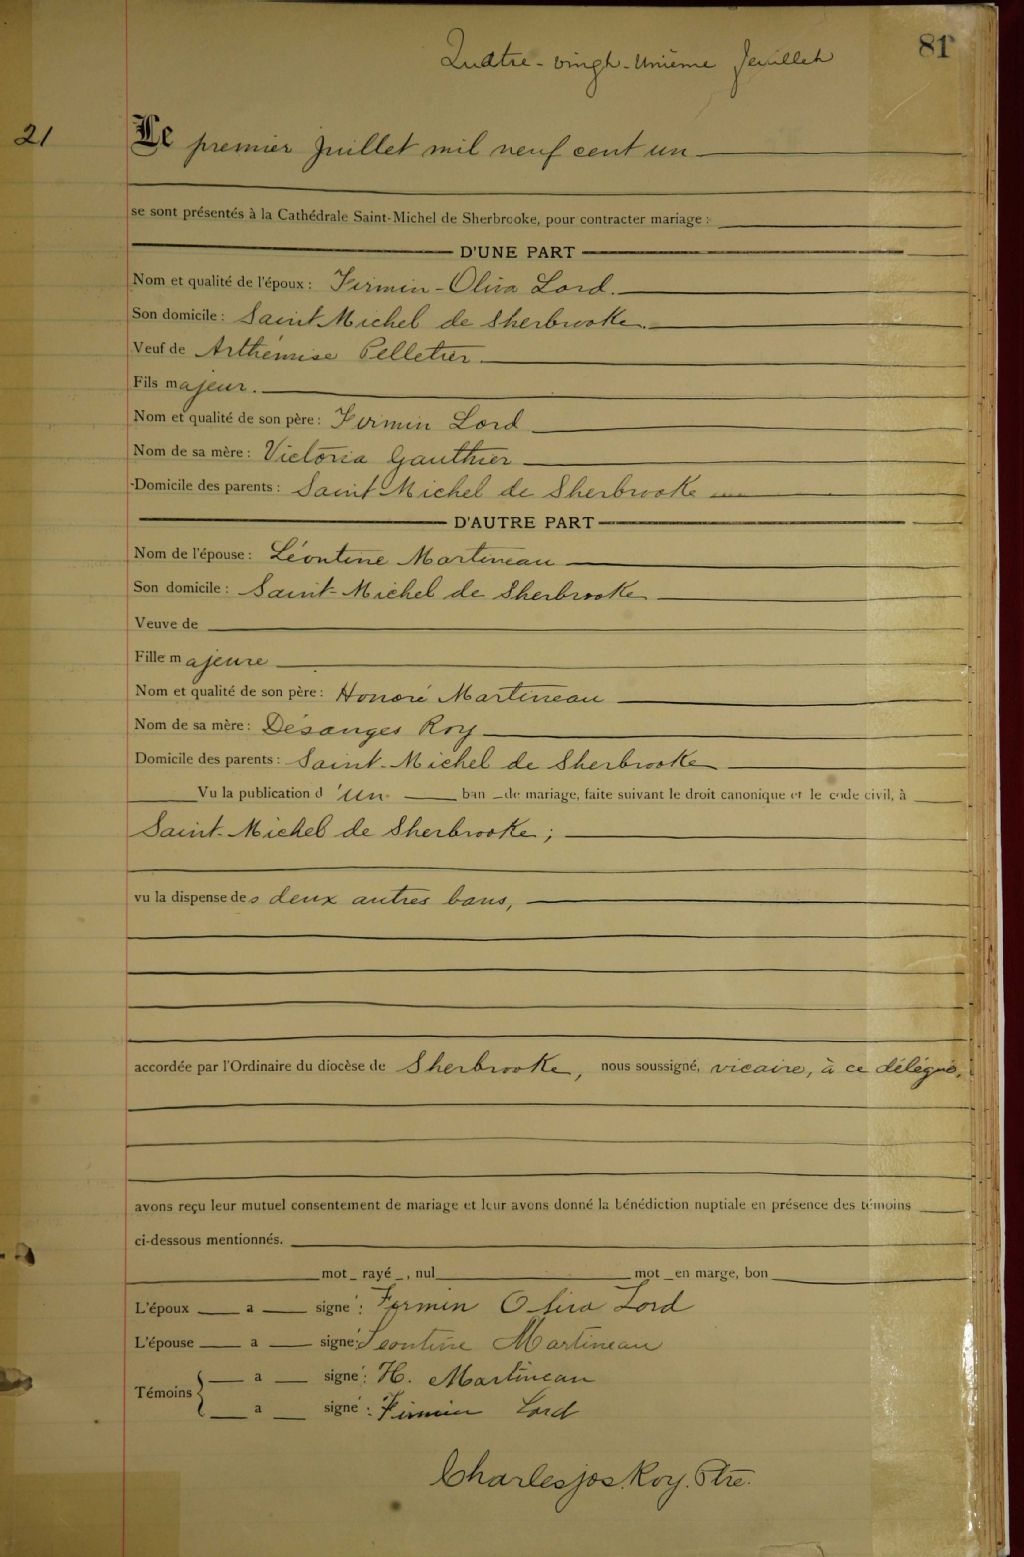 Quatre-vingt-unième feuillet
81
21
Le premier juillet mil neuf cent un
se sont présentés à la Cathédrale Saint-Michel de Sherbrooke, pour contracter mariage :
D'UNE PART
Nom et qualité de l'époux : Firmin-Oliva Lord.
Son domicile : Saint-Michel de Sherbrooke.
Veuf de Arthémise Pelletier.
Fils majeur.
Nom et qualité de son père : Firmin Lord
Nom de sa mère : Victoria Gauthier
Domicile des parents : Saint-Michel de Sherbrooke
D'AUTRE PART
Nom de l'épouse : Léontine Martineau
Son domicile : Saint-Michel de Sherbrooke
Veuve de
Fille majeure
Nom et qualité de son père : Honoré Martineau
Nom de sa mère : Désanges Roy
Domicile des parents : Saint-Michel de Sherbrooke
Vu la publication d'un ban de mariage, faite suivant le droit canonique et le code civil, à
Saint-Michel de Sherbrooke ;
vu la dispense des deux autres bans,
accordée par l'Ordinaire du diocèse de Sherbrooke, nous soussigné, vicaire, à ce délégué,
avons reçu leur mutuel consentement de mariage et leur avons donné la bénédiction nuptiale en présence des témoins
ci-dessous mentionnés.
mot rayé , nul mot en marge, bon
L'époux a signé : Firmin Oliva Lord
L'épouse a signé : Leontine Martineau
Témoins a signé : H. Martineau
a signé : Firmin Lord
Charles Jos. Roy. Ptre.